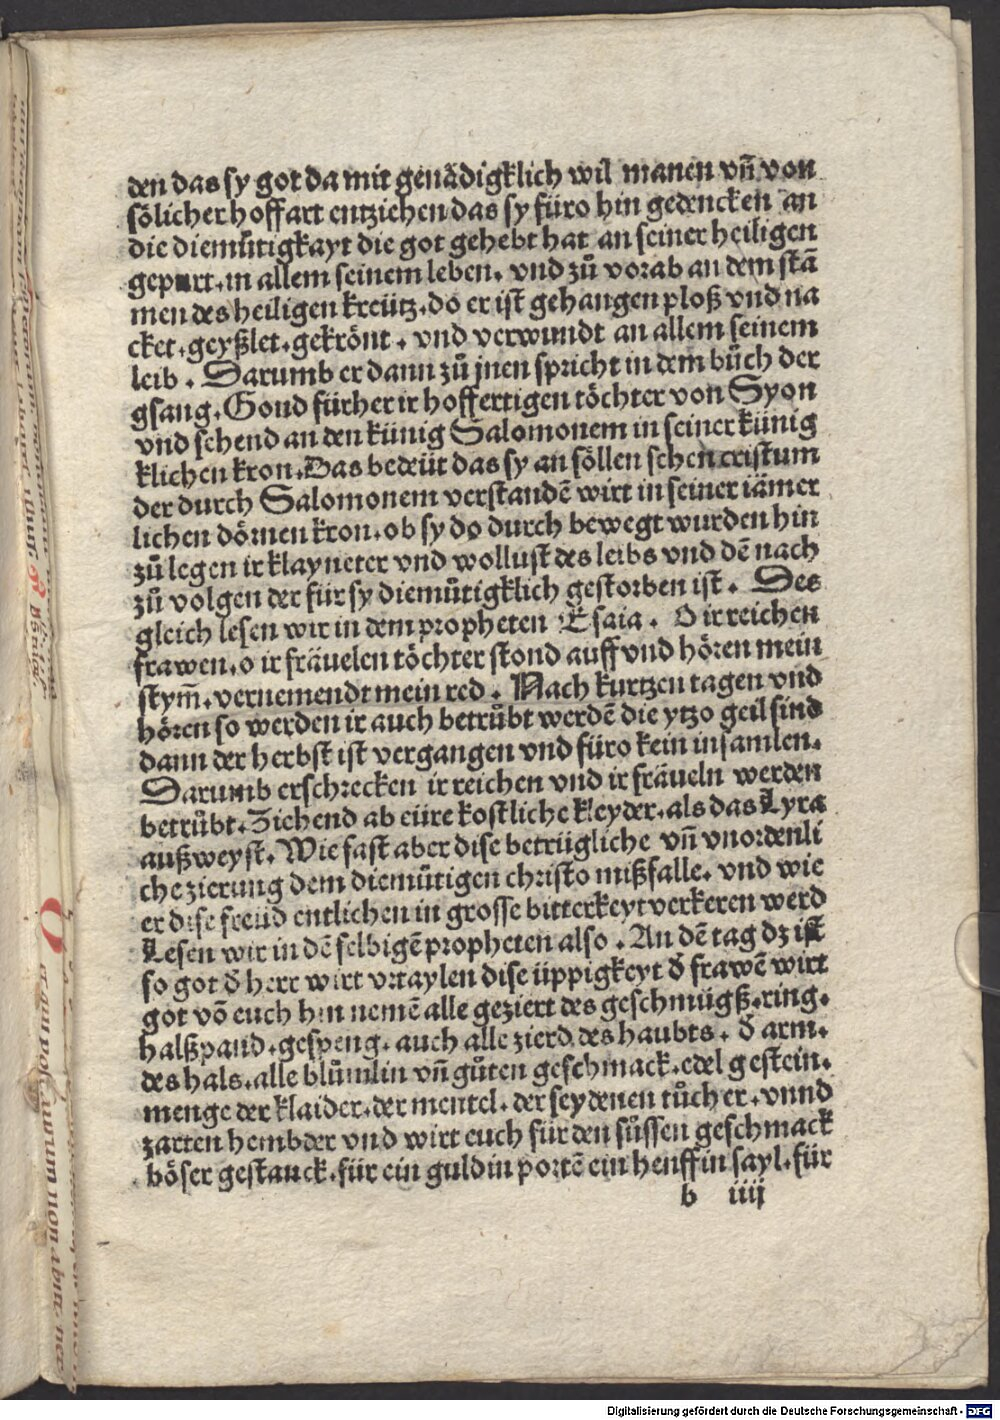 den das sy got da mit genådigklich wil manen vñ von
sölicher hoffart entziehen das sy füro hin gedencken an
die diemůtigkayt die got gehebt hat an seiner heiligen
gepurt.in allem seinem leben. vnd zů vorab an dem stã
men des heiligen kreütz.do er ist gehangen ploß vnd na
cket.geyßlet.gekrönt. vnd verwundt an allem seinem
leib. Darumb er dann zů jnen spricht in dem bůch der
gsang.Gond fürher ir hoffertigen töchter von Syon
vnd sehend an den künig Salomonem in seiner künig
klichen kron.Das bedeüt das sy an söllen sehen cristum
der durch Salomonem verstandẽ wirt in seiner iämer
lichen dörnen kron.ob sy do durch bewegt wurden hin
zů legen ir klayneter vnd wollust des leibs vnd dẽ nach
zů volgen der für sy diemůtigklich gestorben ist. Des
gleich lesen wir in dem propheten Esaia. O ir reichen
frawen.o ir fräuelen töchter stond auff vnd hören mein
stym̃.vernemendt mein red. Nach kurtzen tagen vnd
hören so werden ir auch betrůbt werdẽ die ytzo geil sind
dann der herbst ist vergangen vnd füro kein insamlen.
Darumb erschrecken ir reichen vnd ir fräueln werden
betrůbt.Ziehend ab eüre kostliche kleyder.als das Lyra
außweyst.Wie fast aber dise betrügliche vñ vnordenli
che zierung dem diemůtigen christo mißfalle. vnd wie
er dise freüd entlichen in grosse bitterkeyt verkeren werd
Lesen wir in dẽ selbigẽ propheten also. An dẽ tag dz ist
so got d̃ herr wirt vrtaylen dise üppigkeyt d̃ frawẽ wirt
got võ euch hin nemẽ alle geziert des geschmügß.ring.
halßpand.gespeng.auch alle zierd des haubts. d̃ arm.
des hals.alle blůmlin vñ gůten geschmack.edel gestein.
menge der klaider.der mentel.der seydenen tůcher.vnnd
zarten hembder vnd wirt euch für den süssen geschmack
böser gestanck.für ein guldin portẽ ein henffin sayl.für
b iiij
Digitalisierung gefördert durch die Deutsche Forschungsgemeinschaft - DFG